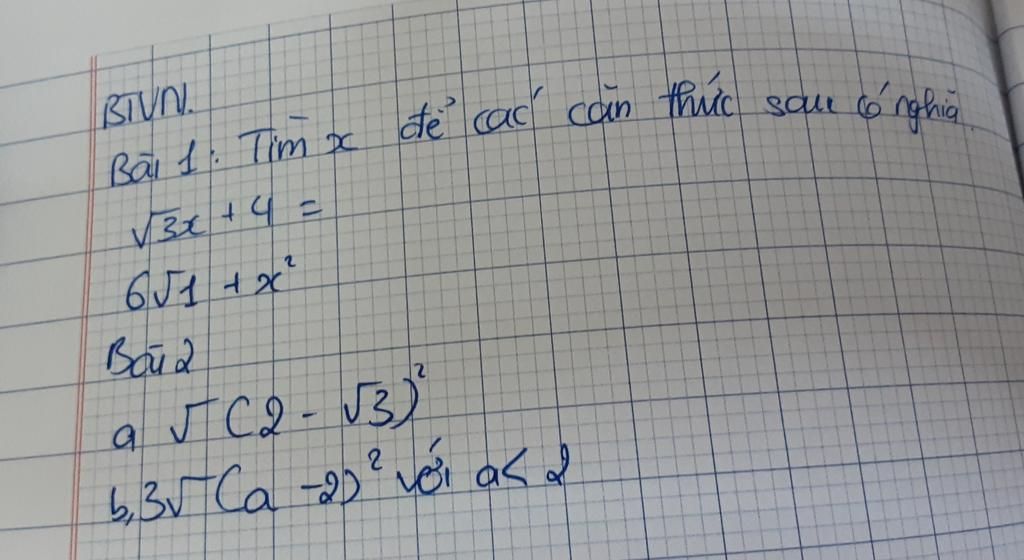 BTVN.
Bài 1: Tìm x để các căn thức sau có nghĩa.
√3x + 4 =
6√1 + x²
Bài 2
a √(2 - √3)²
b, 3√(a - 2)² với a < 2